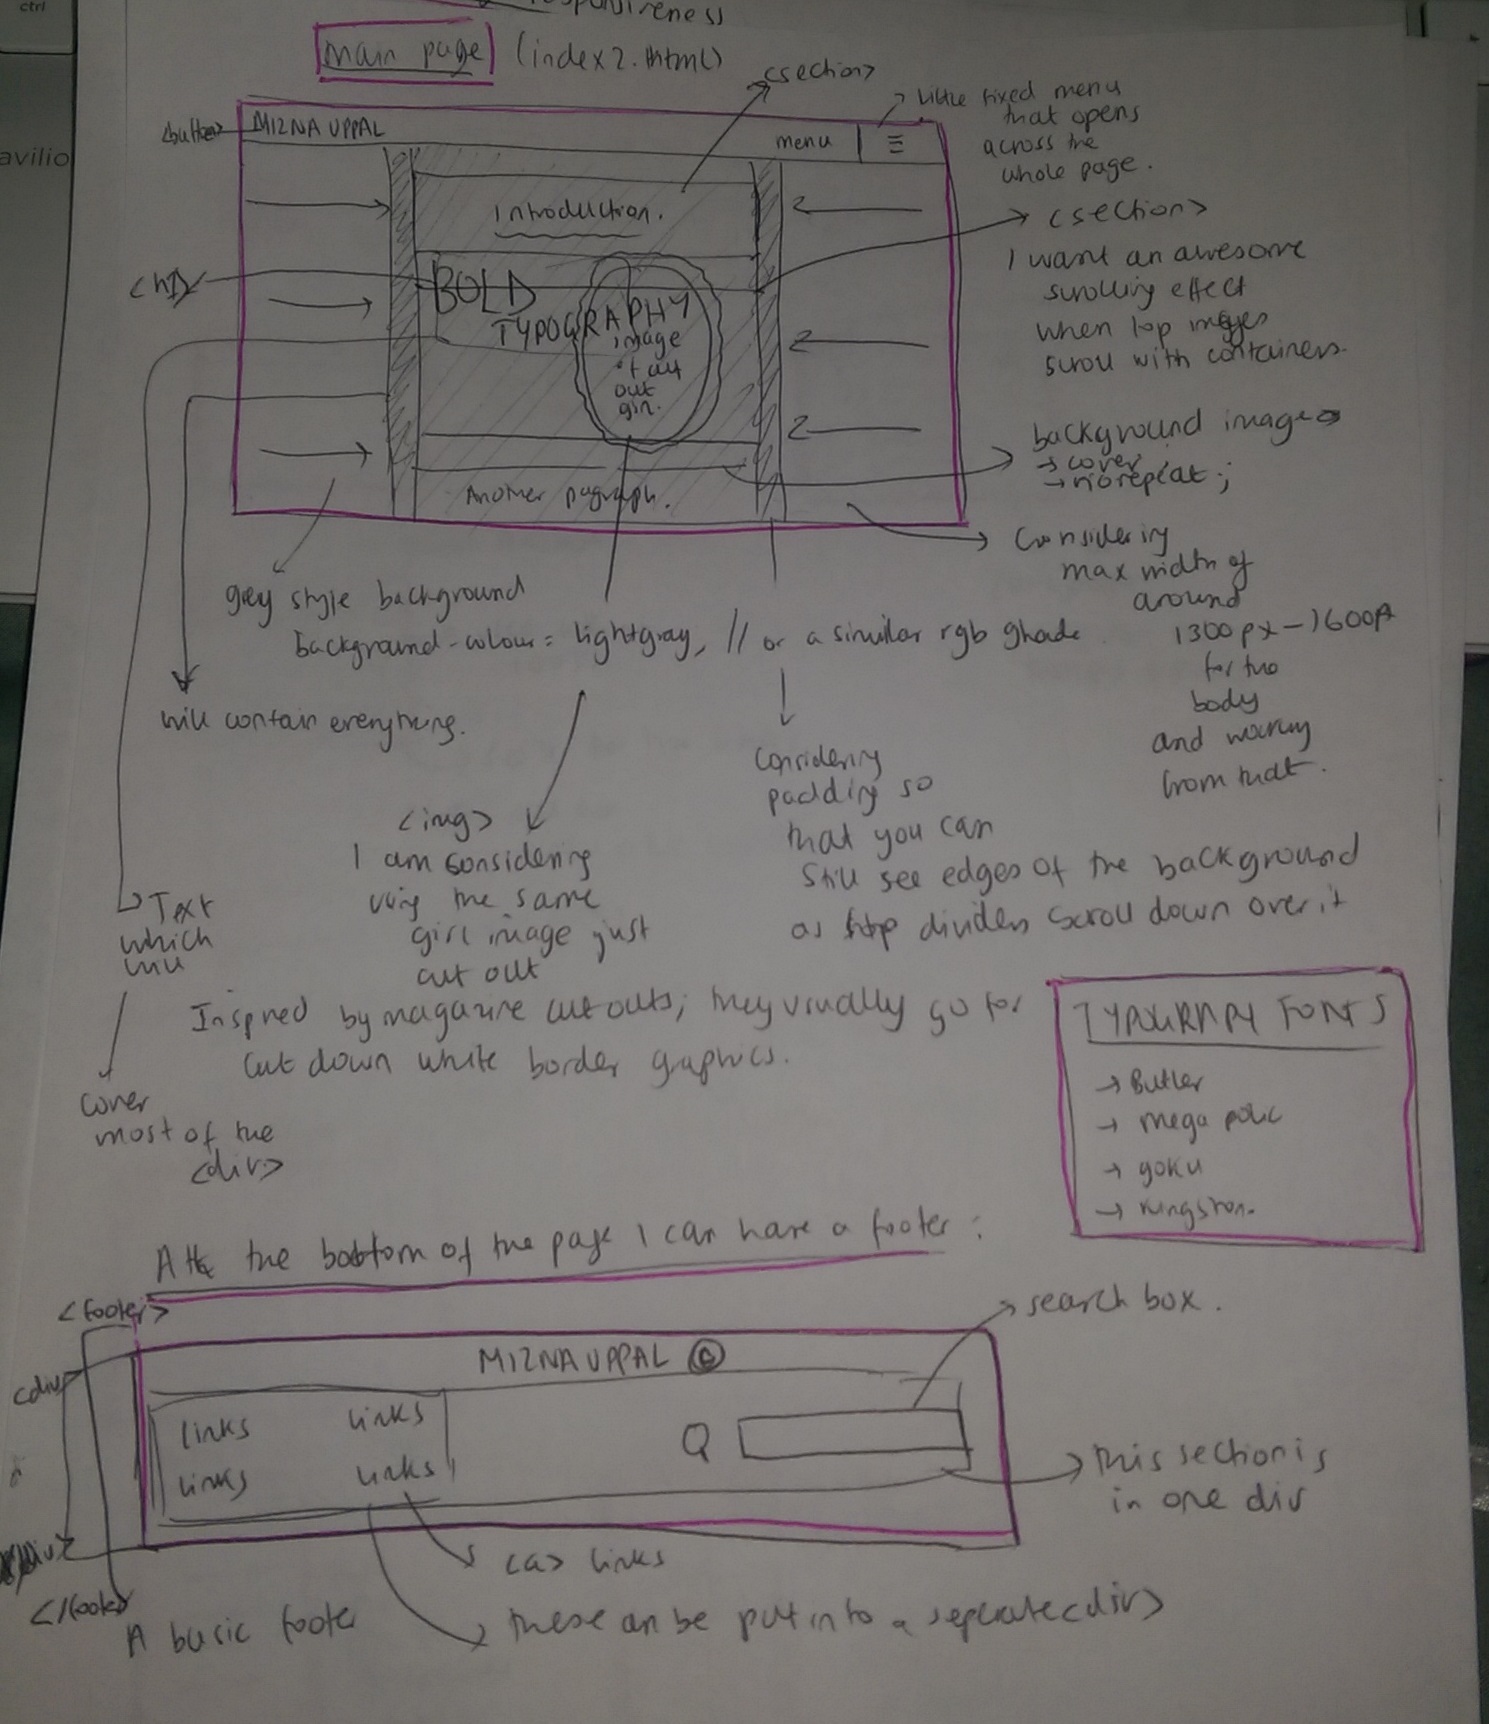 ctrl
responsiveness
main page (index2.html)
<section>
little fixed menu
that opens
across the
whole page.
<button>
MIZNA UPPAL
menu
avilio
Introduction.
<section>
I want an awesome
scrolling effect
when top images
scroll with containers.
<h1>
BOLD
TYPOGRAPHY
image
of cut
out
girl.
background images
→ cover
→ norepeat;
Another paragraph.
Considering
max width of
around
1300px - 1600px
for the
body
and working
from that.
grey style background
background-colour = lightgray, // or a similar rgb shade
will contain everything.
Considering
padding so
that you can
still see edges of the background
as top dividers scroll down over it
<img>
I am considering
using the same
girl image just
cut out
Text
which
will
cover
most of the
<div>
Inspired by magazine cut outs; they usually go for
cut down white border graphics.
TYPOGRAPHY FONTS
→ Butler
→ mega
→ goku
→ kingston.
At the bottom of the page I can have a footer:
<footer>
search box.
MIZNA UPPAL ©
<div>
links links
links links
This section is
in one div
<a> links
</div>
</footer>
A basic footer
these can be put into a seperate <div>